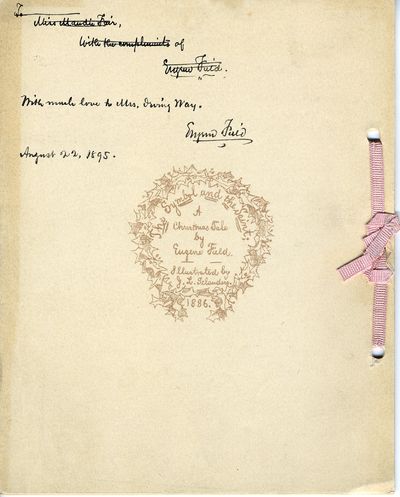 To
Miss Maude Fair,
With the compliments of
Eugene Field.
With much love to Mrs. Irving Way.
Eugene Field
August 22, 1895.
The Symbol and the Saint:
A
Christmas Tale
by
Eugene Field.
Illustrated by
J. L.
1886.